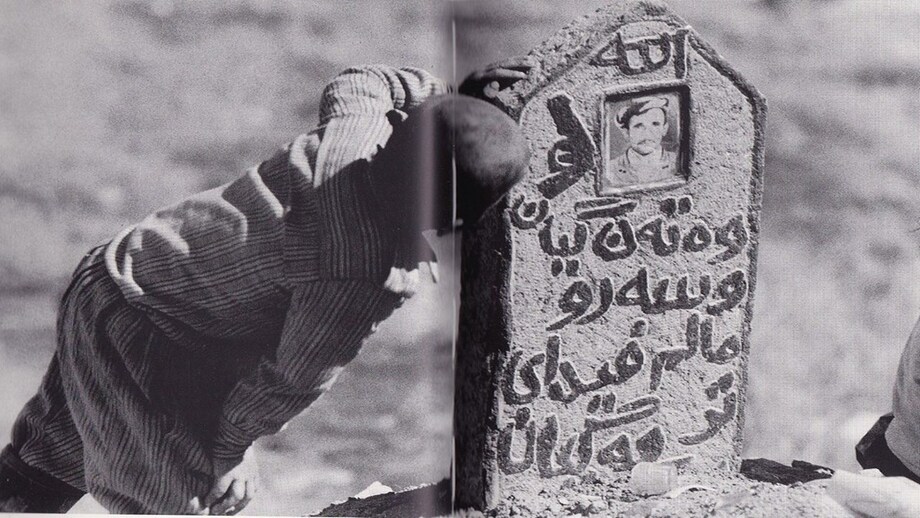 الله
وەتەن گیان
وسەرو
مالم فیدای
تو مەگیان